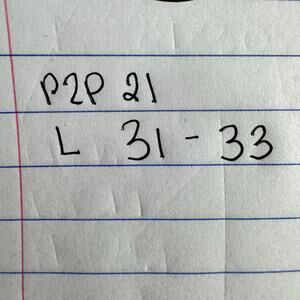 P2P 21
L 31 - 33